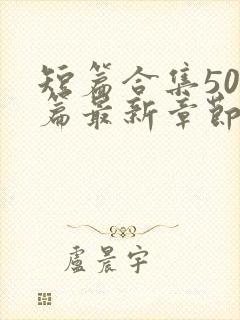 短篇合集50
篇最新章節
盧晨宇